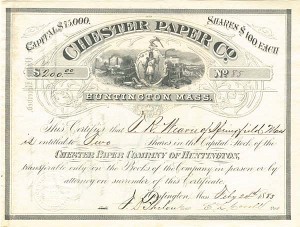 CAPITAL $75,000. SHARES $100 EACH
CHESTER PAPER Co.
$200.00 No 85
HUNTINGTON MASS.
This Certifies that R. Weaver of Springfield Mass
is entitled to Two Shares in the Capital Stock of the
CHESTER PAPER COMPANY OF HUNTINGTON,
transferable only on the Books of the Company in person or by
attorney on surrender of this Certificate.
Huntington, Mass July 20th 1883